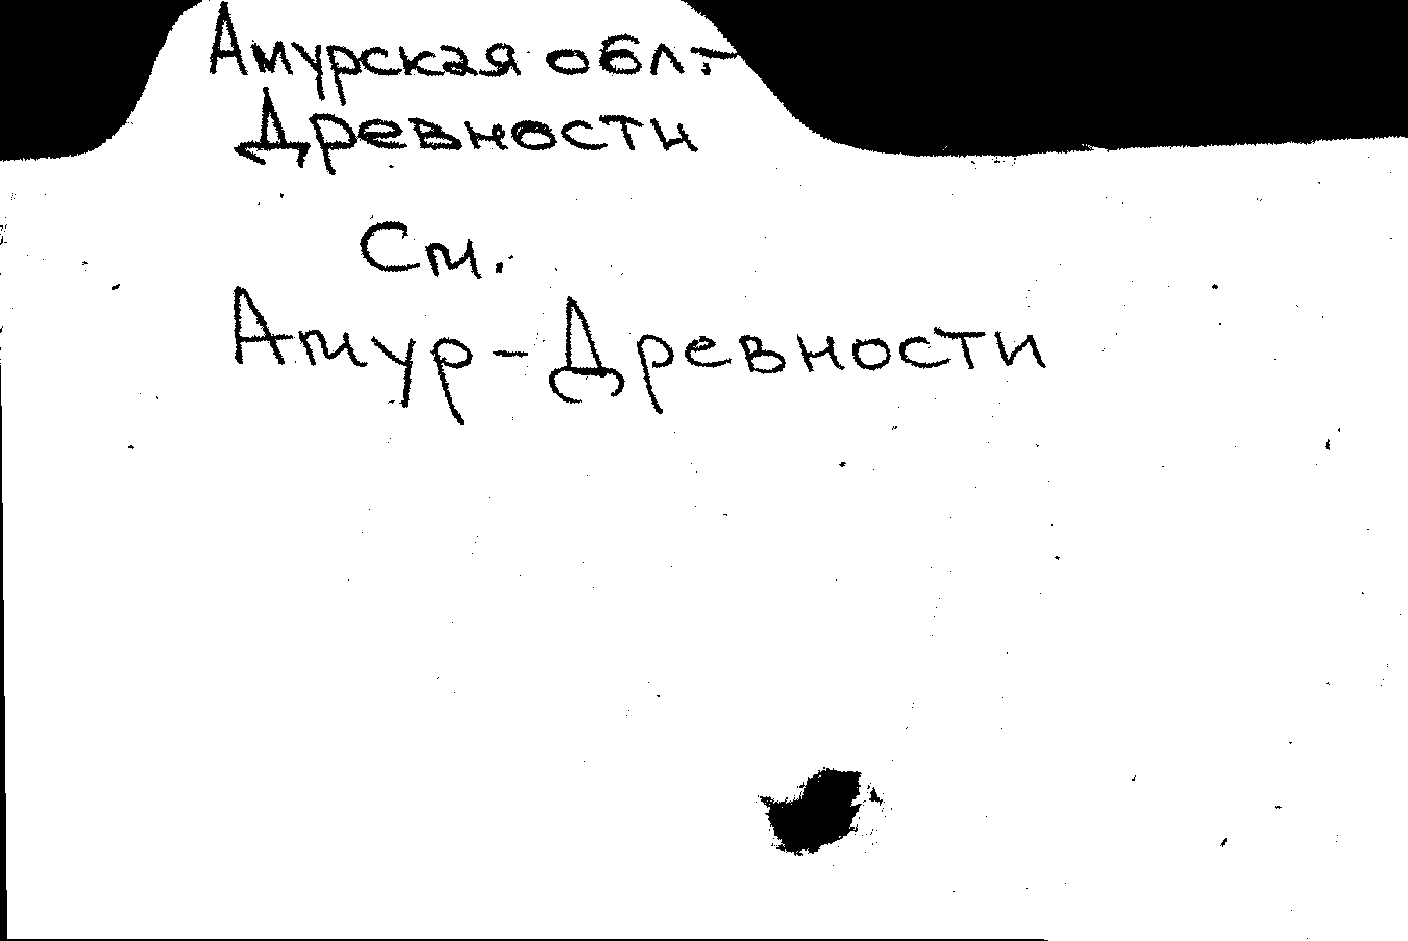 Амурская обл.-
Древности
См.
Амур-Древности